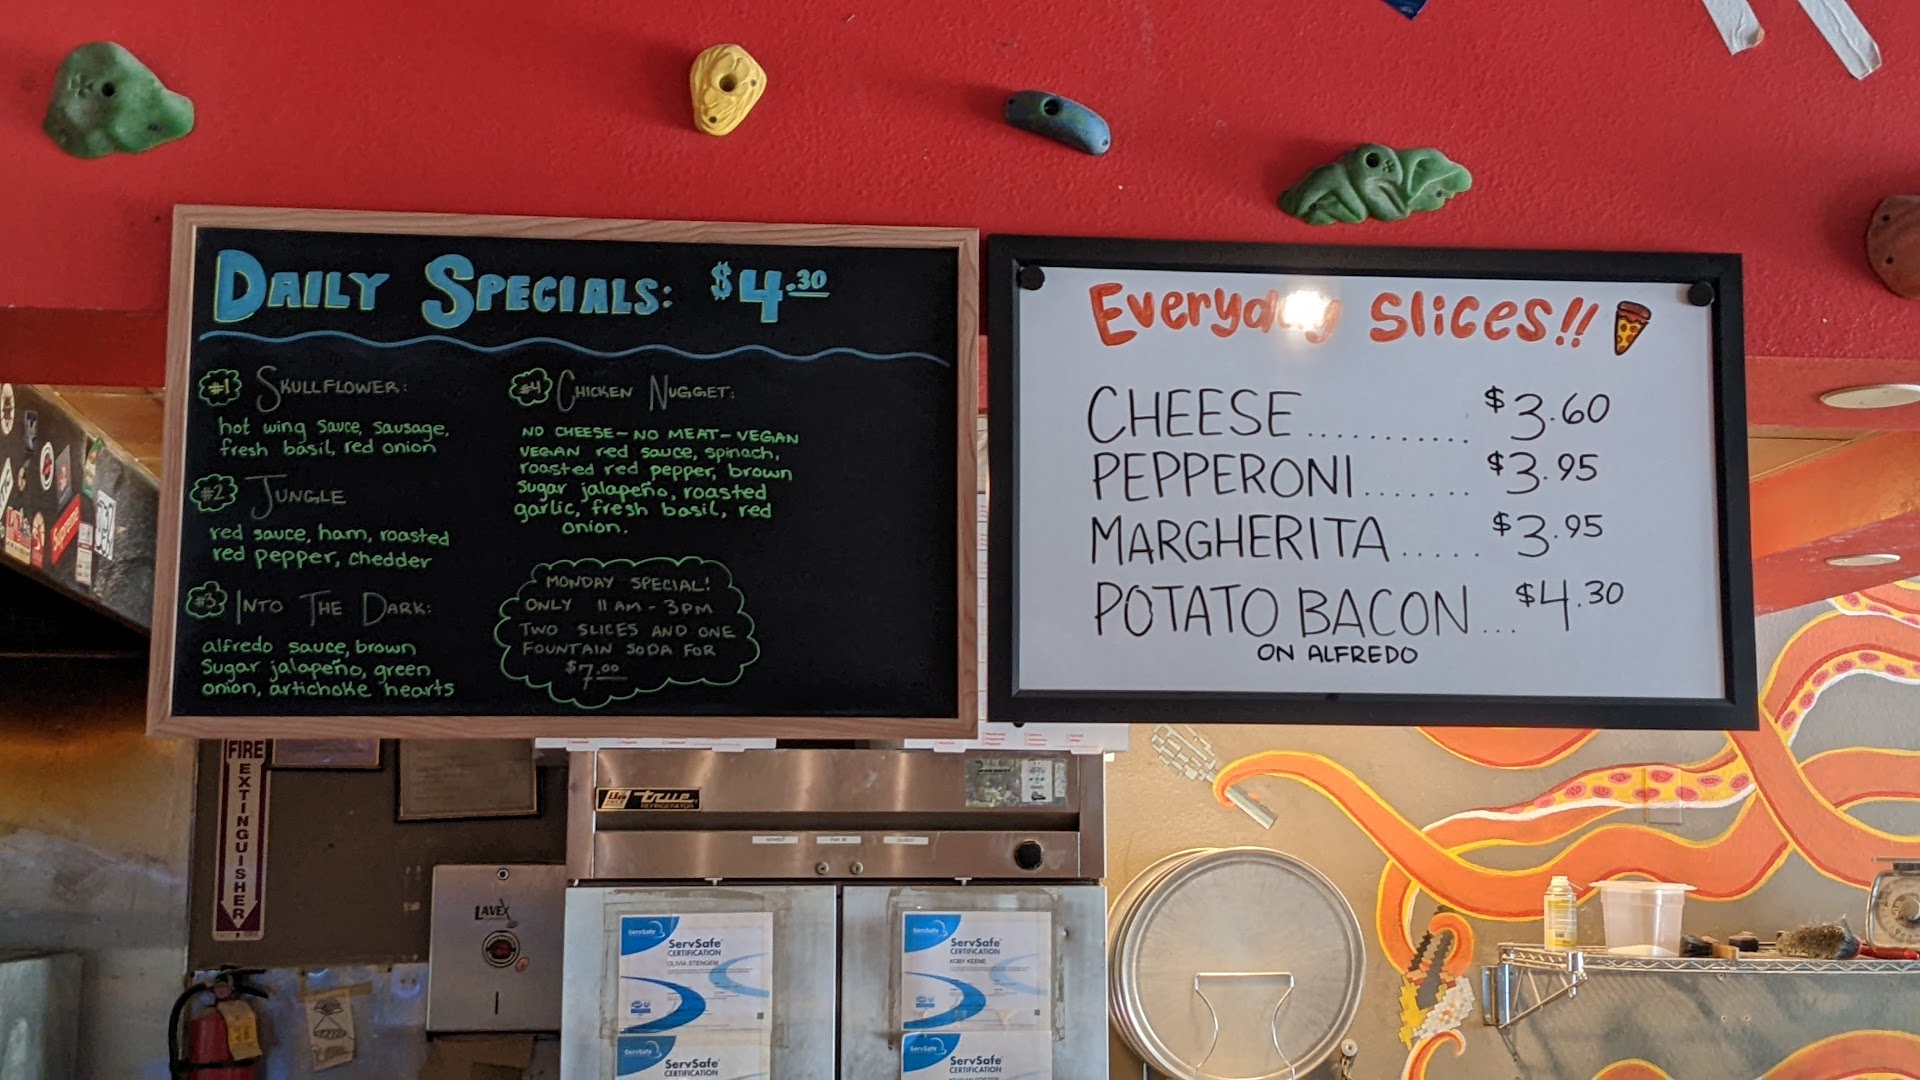 DAILY SPECIALS: $4.30
#1 SKULLFLOWER:
hot wing sauce, sausage,
fresh basil, red onion
#2 JUNGLE
red sauce, ham, roasted
red pepper, chedder
#3 INTO THE DARK:
alfredo sauce, brown
Sugar jalapeño, green
onion, artichoke hearts
#4 CHICKEN NUGGET:
NO CHEESE-NO MEAT-VEGAN
VEGAN red sauce, spinach,
roasted red pepper, brown
Sugar jalapeño, roasted
garlic, fresh basil, red
onion.
MONDAY SPECIAL!
ONLY 11 AM - 3PM
TWO SLICES AND ONE
FOUNTAIN SODA FOR
$7.00
Everyday Slices!!
CHEESE........... $3.60
PEPPERONI....... $3.95
MARGHERITA..... $3.95
POTATO BACON... $4.30
ON ALFREDO
FIRE
EXTINGUISHER
true
REFRIGERATOR
LAVEX
ServSafe
ServSafe
CERTIFICATION
OLIVIA STENGEM
ServSafe
ServSafe
CERTIFICATION
KOBY KEENE
ServSafe
ServSafe
CERTIFICATION
ServSafe
ServSafe
CERTIFICATION
Supreme